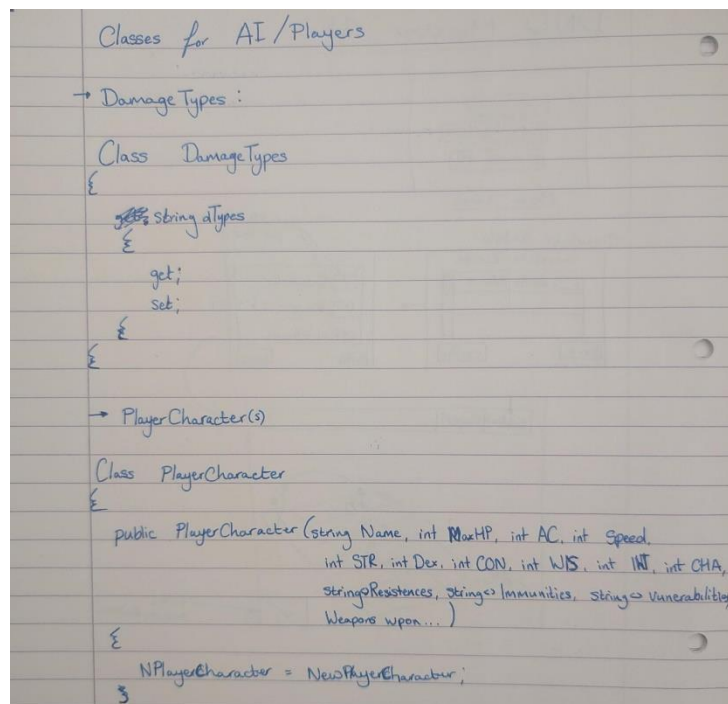 Classes for AI/Players
→ DamageTypes :
Class DamageTypes
{
string dTypes
{
get;
set;
{
{
→ PlayerCharacter(s)
Class PlayerCharacter
{
public PlayerCharacter (string Name, int MaxHP, int AC, int Speed,
int STR, int Dex, int CON, int WIS, int INT, int CHA,
string<>Resistences, string<> Immunities, string<> vunerabilities,
Weapons wpon... )
{
NPlayerCharacter = NewPlayerCharacter;
}